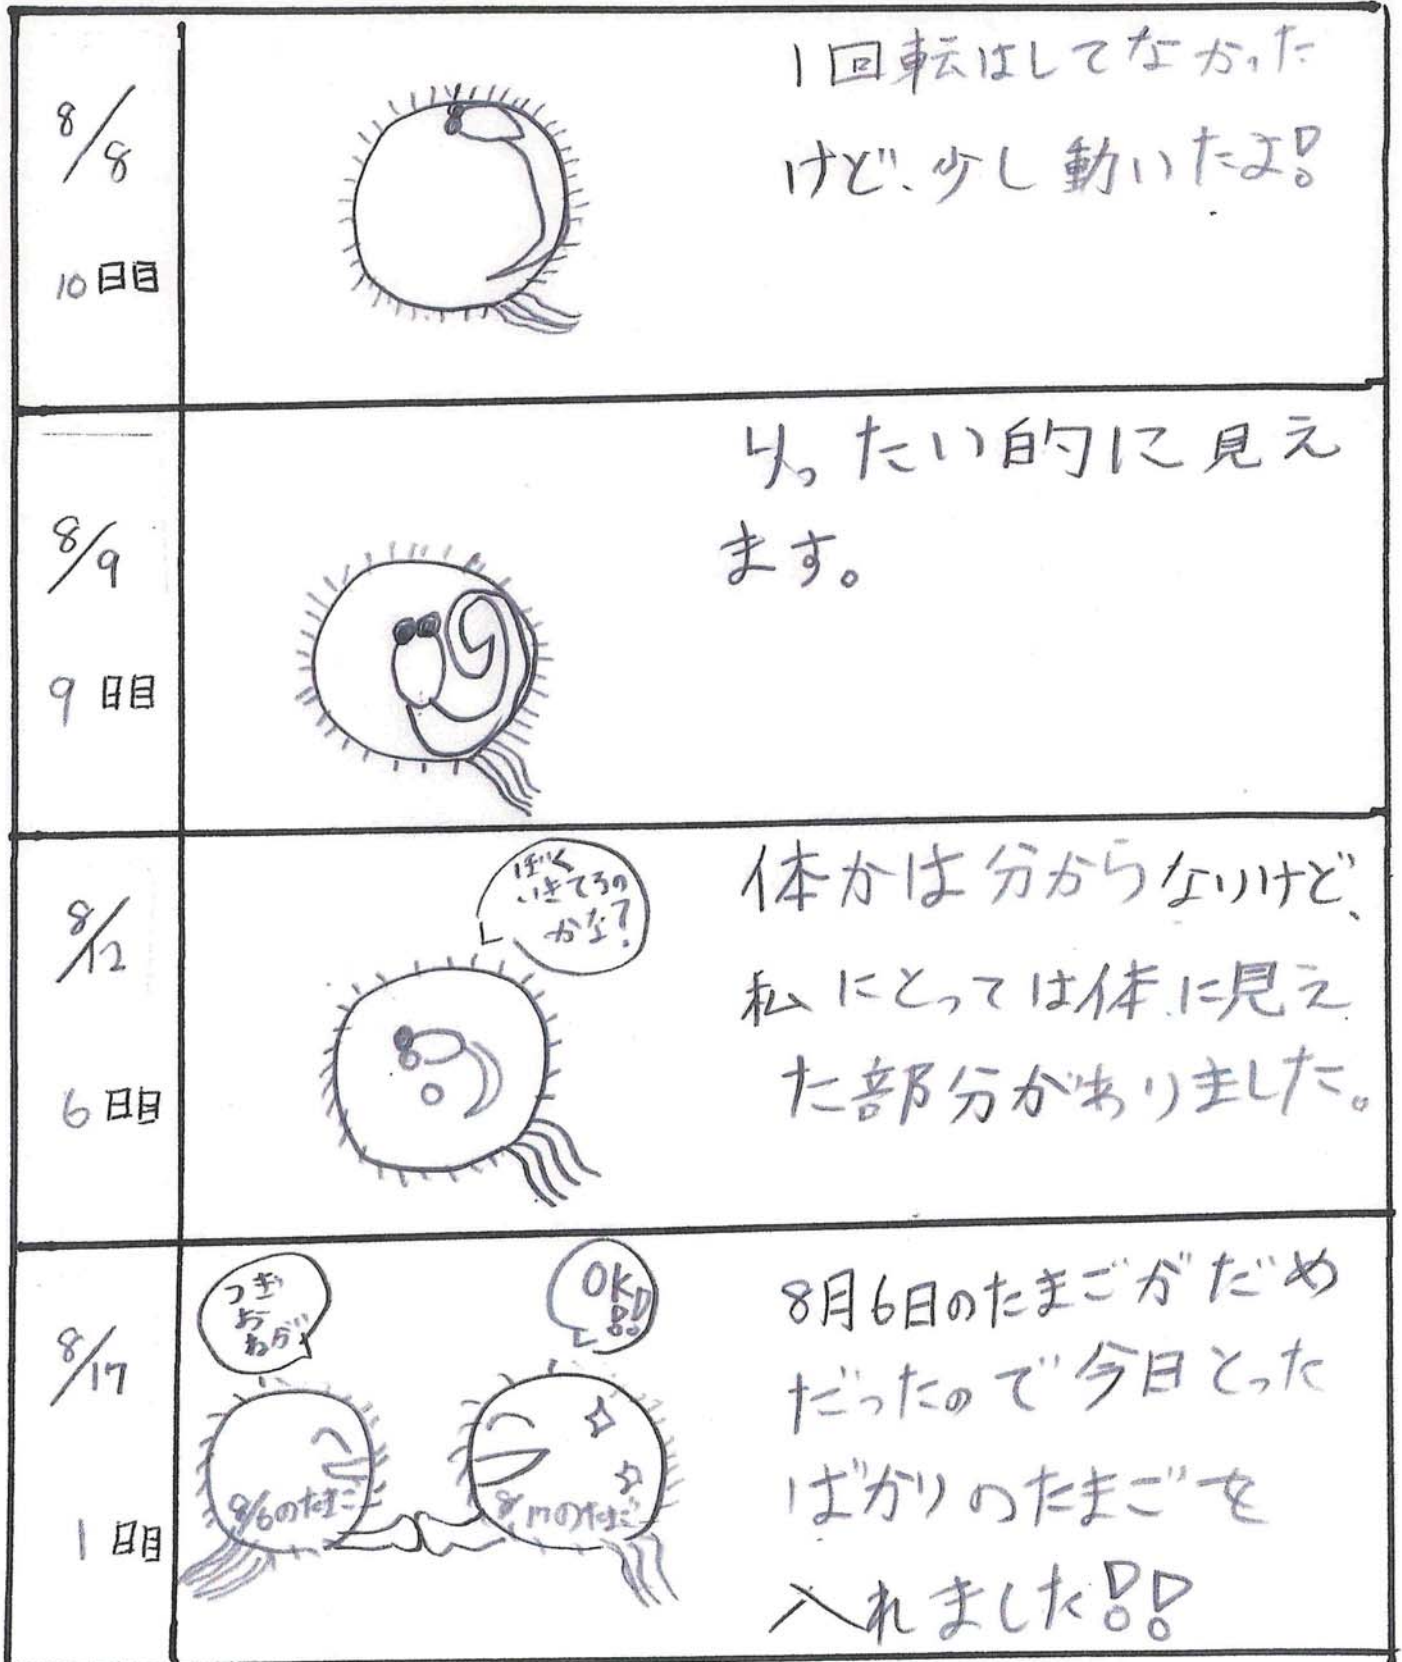 8/8
10日目
1回転はしてなかった
けど、少し動いたよ!
8/9
9日目
りったい的に見え
ます。
8/12
6日目
ぼく
いきてるの
かな?
体かは分からないけど、
私にとっては体に見え
た部分がありました。
8/17
1日目
つぎ
おねがい
OK!!
8/6のたまご
8/17のたまご
8月6日のたまごがだめ
だったので今日とった
ばかりのたまごを
入れました!!